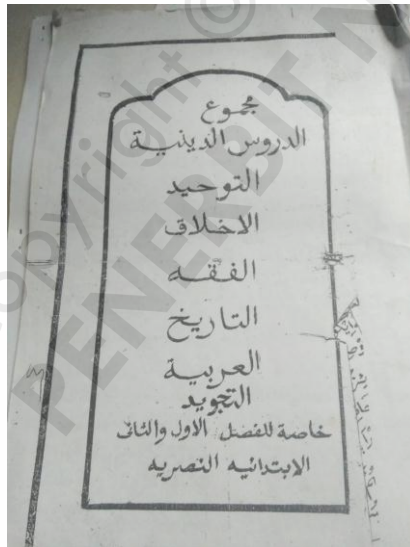 مجموع
الدروس الدينية
التوحيد
الاخلاق
الفقه
التاريخ
العربية
التجويد
خاصة للفصل الاول والثانى
الابتدائيه النصريه
Copyright ©
PENERBIT